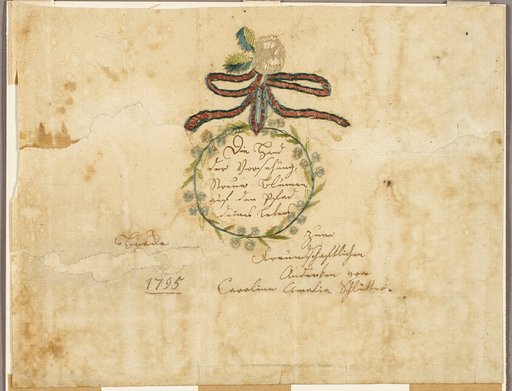 Die Hand
der Vorsehung
Streue Blumen
auf den Pfad
deines Lebens
Zum
freundschaftlichen
Andenken von
Carolina Amalia Schlütter.
1795